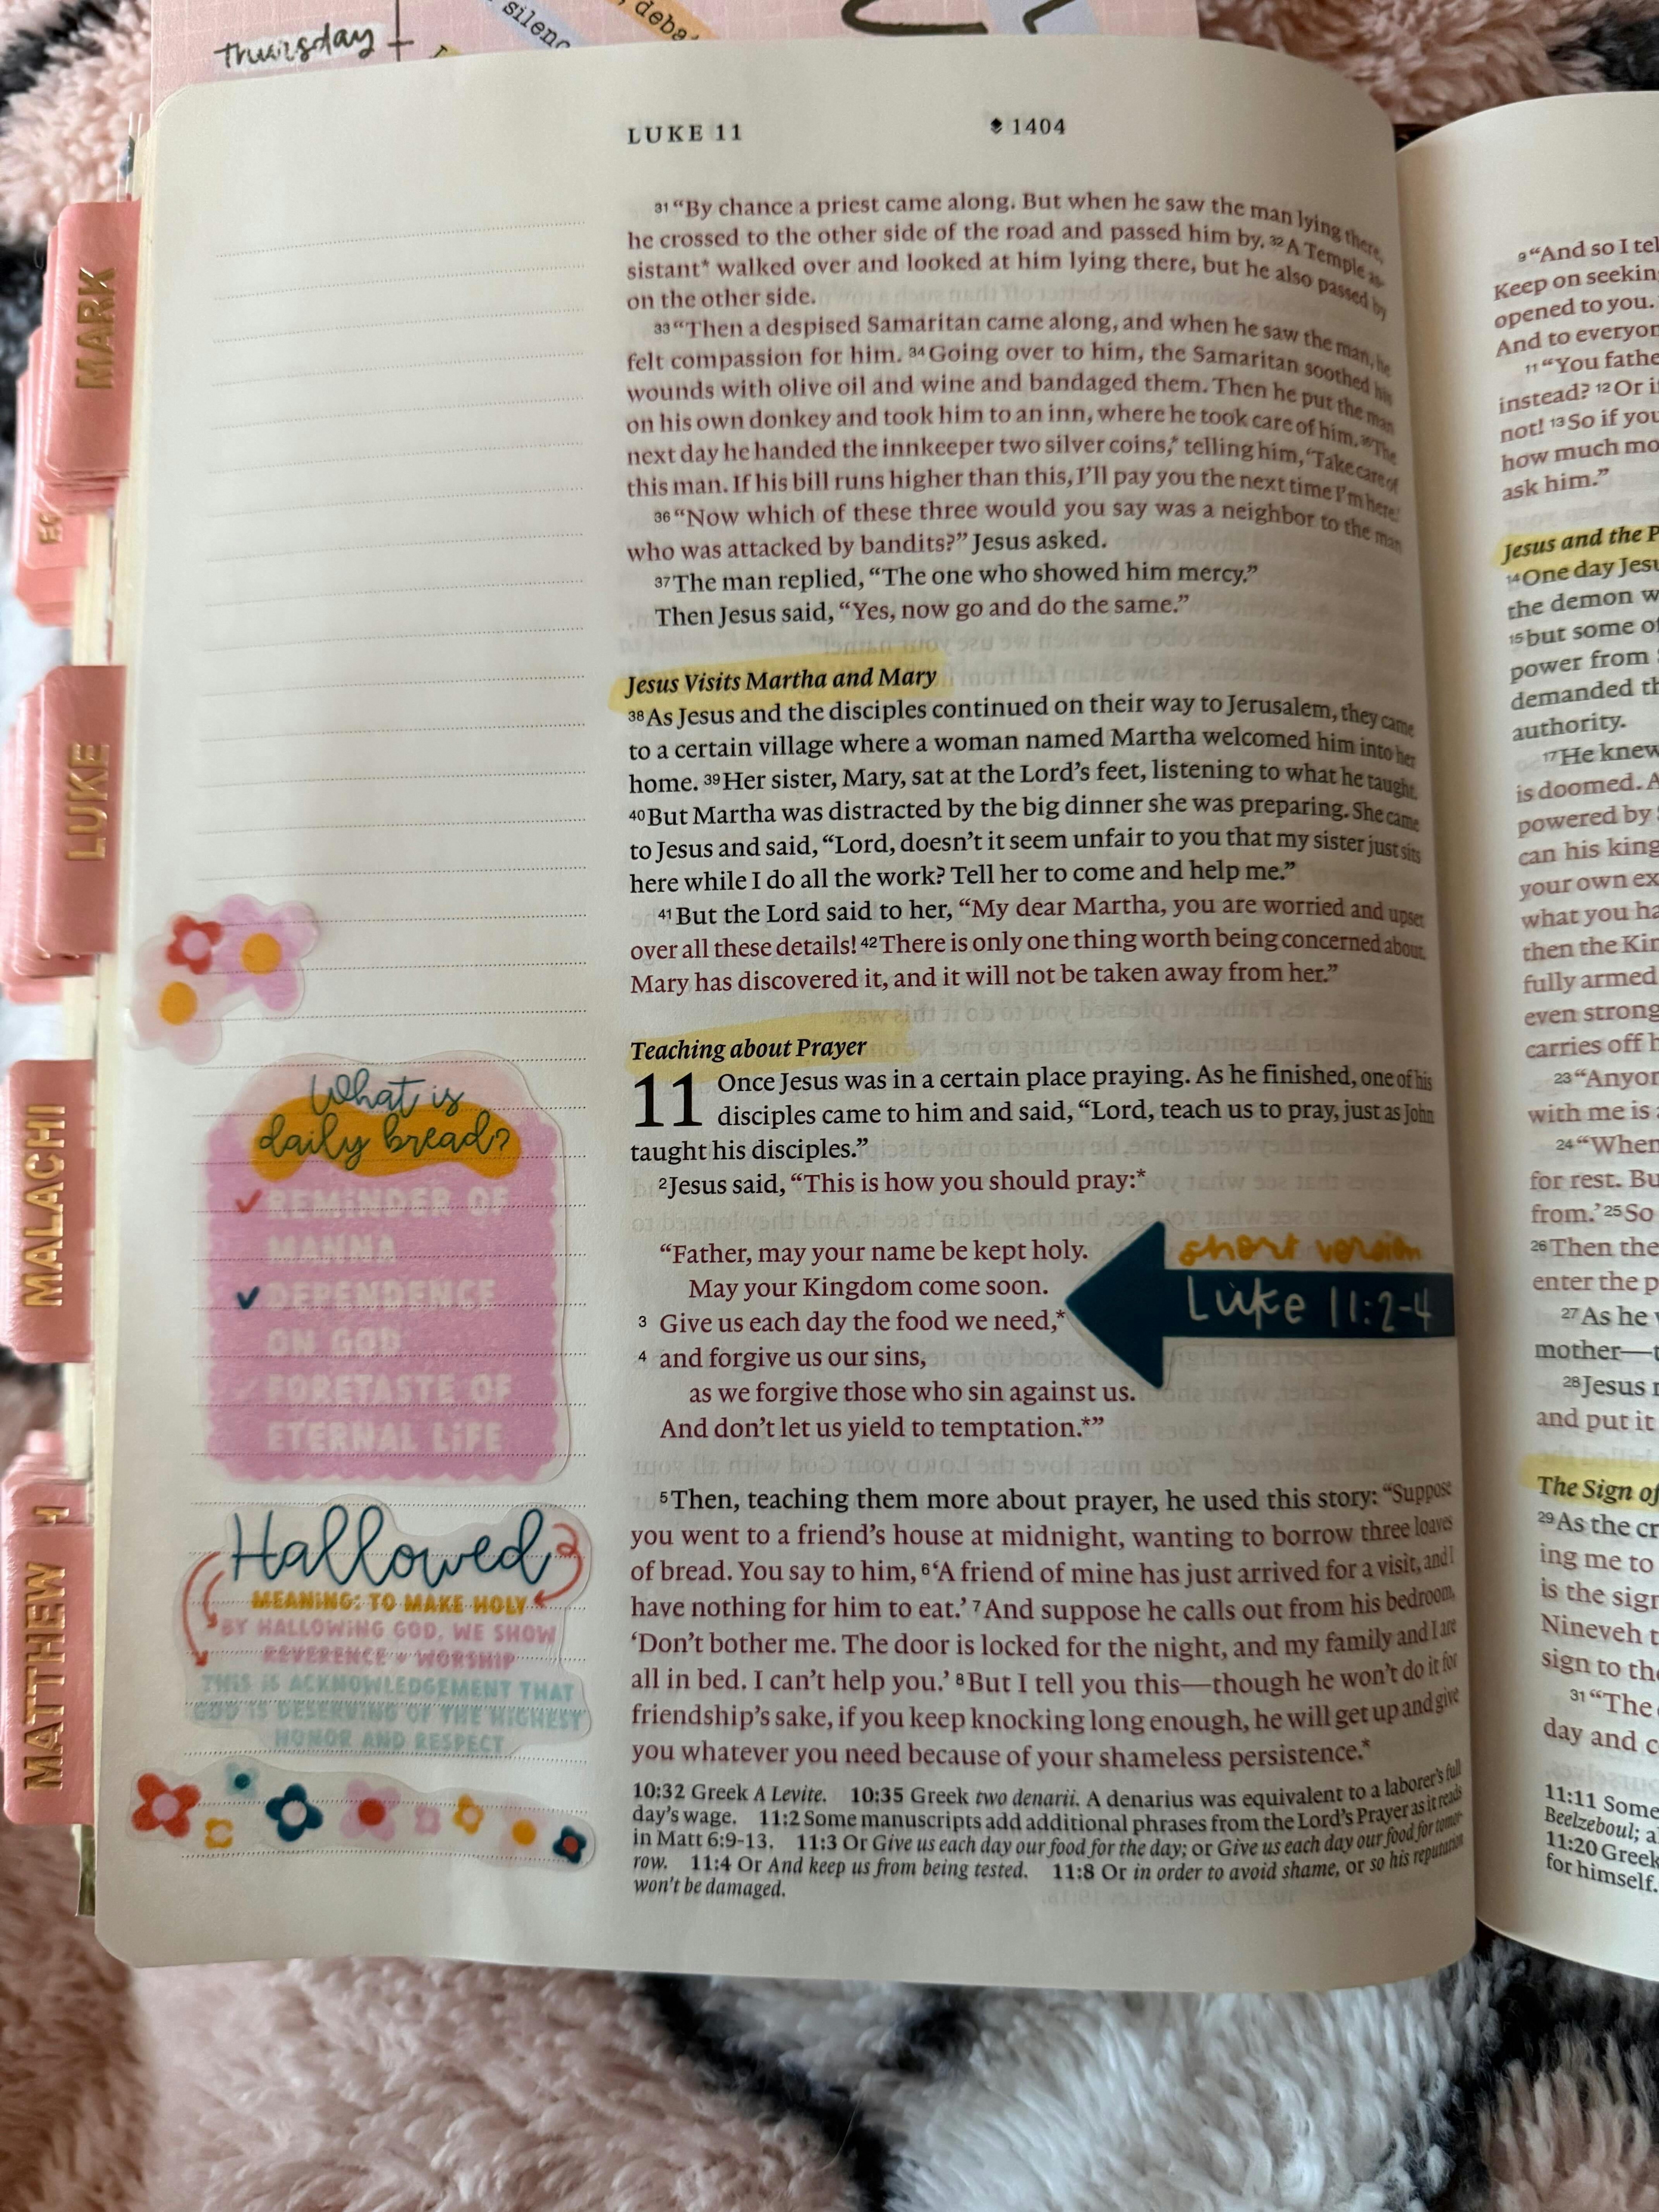 Thursday
silenc
deba
LUKE 11
1404
31 “By chance a priest came along. But when he saw the man lying there,
he crossed to the other side of the road and passed him by. 32 A Temple as-
sistant* walked over and looked at him lying there, but he also passed by
on the other side.
33 “Then a despised Samaritan came along, and when he saw the man, he
felt compassion for him. 34 Going over to him, the Samaritan soothed his
wounds with olive oil and wine and bandaged them. Then he put the man
on his own donkey and took him to an inn, where he took care of him. 35 The
next day he handed the innkeeper two silver coins,* telling him, ‘Take care of
this man. If his bill runs higher than this, I’ll pay you the next time I’m here.’
36 “Now which of these three would you say was a neighbor to the man
who was attacked by bandits?” Jesus asked.
37 The man replied, “The one who showed him mercy.”
Then Jesus said, “Yes, now go and do the same.”
Jesus Visits Martha and Mary
38 As Jesus and the disciples continued on their way to Jerusalem, they came
to a certain village where a woman named Martha welcomed him into her
home. 39 Her sister, Mary, sat at the Lord’s feet, listening to what he taught.
40 But Martha was distracted by the big dinner she was preparing. She came
to Jesus and said, “Lord, doesn’t it seem unfair to you that my sister just sits
here while I do all the work? Tell her to come and help me.”
41 But the Lord said to her, “My dear Martha, you are worried and upset
over all these details! 42 There is only one thing worth being concerned about.
Mary has discovered it, and it will not be taken away from her.”
Teaching about Prayer
11 Once Jesus was in a certain place praying. As he finished, one of his
disciples came to him and said, “Lord, teach us to pray, just as John
taught his disciples.”
2 Jesus said, “This is how you should pray:*
“Father, may your name be kept holy.
May your Kingdom come soon.
3 Give us each day the food we need,*
4 and forgive us our sins,
as we forgive those who sin against us.
And don’t let us yield to temptation.*”
short version
Luke 11:2-4
5 Then, teaching them more about prayer, he used this story: “Suppose
you went to a friend’s house at midnight, wanting to borrow three loaves
of bread. You say to him, 6 ‘A friend of mine has just arrived for a visit, and I
have nothing for him to eat.’ 7 And suppose he calls out from his bedroom,
‘Don’t bother me. The door is locked for the night, and my family and I are
all in bed. I can’t help you.’ 8 But I tell you this—though he won’t do it for
friendship’s sake, if you keep knocking long enough, he will get up and give
you whatever you need because of your shameless persistence.*
10:32 Greek A Levite. 10:35 Greek two denarii. A denarius was equivalent to a laborer’s full
day’s wage. 11:2 Some manuscripts add additional phrases from the Lord’s Prayer as it reads
in Matt 6:9-13. 11:3 Or Give us each day our food for the day; or Give us each day our food for tomor-
row. 11:4 Or And keep us from being tested. 11:8 Or in order to avoid shame, or so his reputation
won’t be damaged.
What is
daily bread?
REMINDER OF
MANNA
DEPENDENCE
ON GOD
FORETASTE OF
ETERNAL LIFE
Hallowed
MEANING: TO MAKE HOLY
BY HALLOWING GOD, WE SHOW
REVERENCE + WORSHIP
THIS IS ACKNOWLEDGEMENT THAT
GOD IS DESERVING OF THE HIGHEST
HONOR AND RESPECT
MARK
LUKE
MALACHI
MATTHEW
9 “And so I tel
Keep on seekin
opened to you.
And to everyon
11 “You fathe
instead? 12 Or i
not! 13 So if you
how much mo
ask him.”
Jesus and the P
14 One day Jesu
the demon w
15 but some o
power from
demanded th
authority.
17 He knew
is doomed. A
powered by
can his king
your own ex
what you ha
then the Kin
fully armed
even strong
carries off h
23 “Anyon
with me is
24 “When
for rest. Bu
from.’ 25 So
26 Then the
enter the p
27 As he
mother—t
28 Jesus r
and put it
The Sign of
29 As the cr
ing me to
is the sign
Nineveh t
sign to the
31 “The
day and c
11:11 Some
Beelzeboul; a
11:20 Greek
for himself.